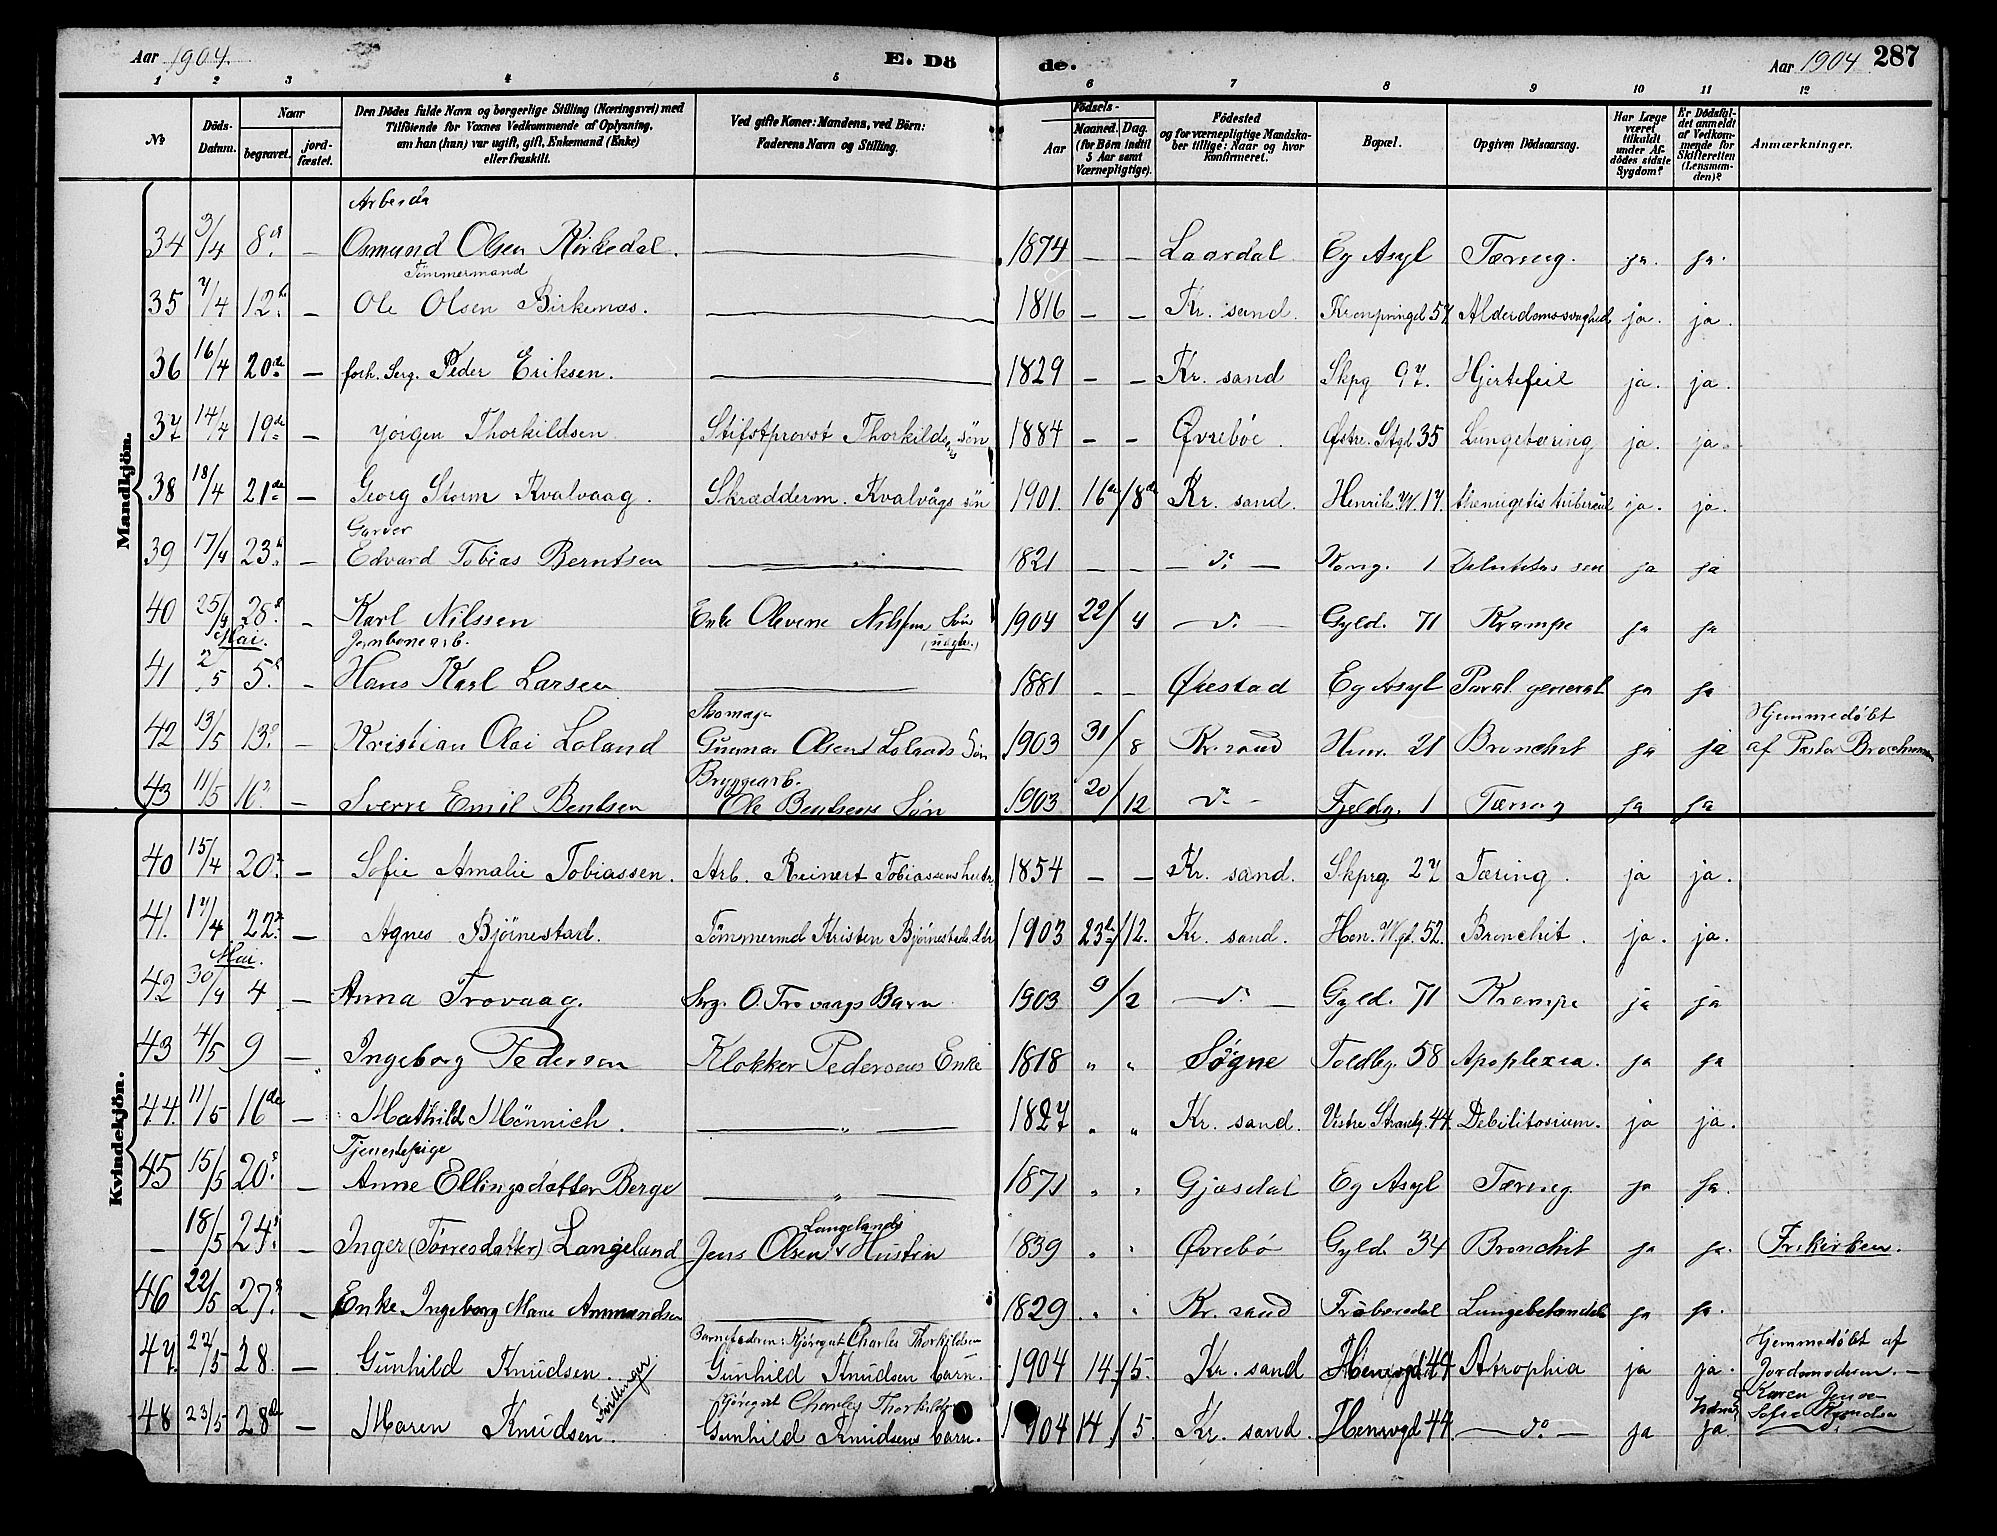 Aar 1904.
E. Dö
de.
Aar 1904
287
1 2 3 4 5 6 7 8 9 10 11 12
No
Döds-Datum.
Naar
begravet.
jordfæstet.
Den Dödes fulde Navn og borgerlige Stilling (Næringsvei) med Tilföiende for Voxnes Vedkommende af Oplysning, om han (hun) var ugift, gift, Enkemand (Enke) eller fraskilt.
Ved gifte Koner: Mandens, ved Börn: Faderens Navn og Stilling.
Födsels-
Aar
Maaned. Dag.
(for Börn indtil 5 Aar samt Værnepligtige).
Födested og for værnepligtige Mandskaber tillige: Naar og hvor konfirmeret.
Bopæl.
Opgiven Dödsaarsag.
Har Læge været tilkaldt under Afdödes sidste Sygdom?
Er Dödsfaldet anmeldt af Vedkommende for Skifteretten (Lensmanden)?
Anmærkninger.
Mandkjön.
Arbeida
34 3/4 8d. — Osmund Olsen Kirkedal. — 1874 — — Laardal Eg Asyl Tæring. ja. ja.
Tömmermand
35 7/4 12te — Ole Olsen Birkenæs. — 1816 — — Kr. sand. Kronprinsgd 57 Alderdomssvaghed ja. ja.
36 16/4 20de — forh. Serg. Peder Eriksen. — 1829 — — Kr. sand Skpg 97. Hjertefeil ja. ja.
37 14/4 19de — Jörgen Thorkildsen Stiftsprovst Thorkildsens sön 1884 — — Øvrebøe. Østre. Stgd 35 Lungetæring ja. ja.
38 18/4 21de — Georg Storm Kvalvaag. Skrædderm. Kvalvågs sön 1901. 16de/8de Kr. sand. Henrik. W. 17. ja. ja.
Garver
39 17/4 23. — Edvard Tobias Berntsen — 1821 — — do Kong. 1 Debilitas sen ja ja
40 25/4 28. — Karl Nilssen Enke Olevine Nilssen Sön (uægte.) 1904 22/4 do Gyld. 71 Krampe ja ja
Mai. Jernbanearb.
41 2/5 5. — Hans Karl Larsen — 1881 — — Øiestad Eg Asyl Paral. general ja ja
Skomager
42 13/5 13. — Kristian Olai Loland Gunnar Olsens Lolands Sön 1903 31/8 Kr. sand Henr. 21 Bronchit ja ja Hjemmedöbt af Pastor
Bryggearb.
43 11/5 16. — Sverre Emil Bentsen Ole Bentsens Sön 1903 20/12 do Fjeldg. 1 Tæring ja ja
Kvindekjön.
40 15/4 20. — Sofie Amalie Tobiassen. Arb. Reinert Tobiassens hustr. 1854 — — Kr. sand. Skprg. 27 Tæring. ja ja.
41. 17/4 22. — Agnes Bjørnestad. Tömmermd Kristen Bjørnestads dtr 1903 23de/12. Kr. sand. Hen. Wgd. 52. Bronchit. ja. ja.
Mai.
42 30/4 4 — Anna Trovaag. Serg. O. Trovaags Barn 1903 9/2 do Gyld. 71 Krampe ja ja
43 4/5 9 — Ingeborg Pedersen Klokker Pedersens Enke 1818 „ „ Søgne Toldbg. 58 Apoplexia. ja ja
44. 11/5 16de — Mathild Mönnich. — „ — 1827 „ „ Kr. sand. Vestre Strandg. 44. ja ja.
Tjenestepige
45 15/5 20. — Anne Ellingsdatter Berge — „ — 1871 „ „ Gjæsdal Eg Asyl Tæring. ja ja.
— 18/5 24. — Inger (Torresdatter) Langeland Jens Olsen Langelands Hustru 1839 „ „ Øvrebö Gyld. 34 Bronchit ja ja. Frikirken.
46 22/5 27. — Enke Ingeborg Marie Ammundsen — 1829 „ „ Kr. sand ja ja.
Barnefaderen: Kjöregut Charles Thorkildsen
47. 22/5 28. — Gunhild Knudsen. Gunhild Knudsen barn. 1904 14./5. Kr. sand Henrwgd 44 Atrophia ja ja. Hjemmedöbt af Jordmoderen.
Tvillinger
Kjöregut Charles Thorkildsen
48 23/5 28de — Maren Knudsen. Gunhild Knudsens barn. 1904 14./5. Kr. sand. Henrwgd 44. — do — ja ja. Karen